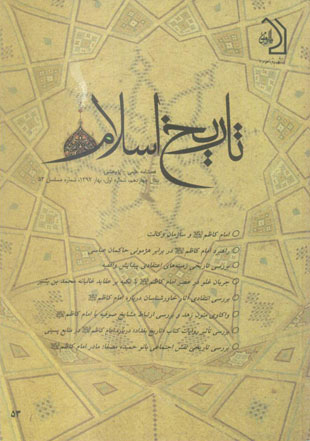 تاریخ اسلام
فصلنامه علمی - پژوهشی
سال چهاردهم، شماره اول، بهار ۱۳۹۲، شماره مسلسل ۵۳
امام کاظم و سازمان وکالت
راهبرد امام کاظم در برابر هژمونی حاکمان عباسی
بررسی تاریخی زمینه‌های اعتقادی پیدایش واقفیه
جریان غلو در عصر امام کاظم با تکیه بر عقاید غالیانه محمد بن بشیر
بررسی انتقادی آثار خاورشناسان درباره امام کاظم
واکاوی متون زهد و بررسی ارتباط مشایخ صوفیه با امام کاظم
بررسی تأثیر روایات کتاب تاریخ بغداد درباره امام کاظم در منابع پسینی
بررسی تاریخی نقش اجتماعی بانو حمیده مصفا؛ مادر امام کاظم
۵۳